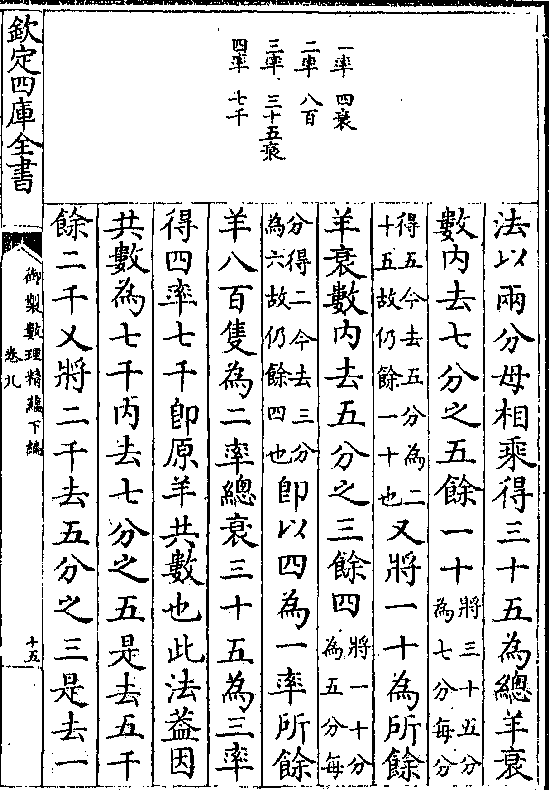 一率 四衰
二率 八百
三率 三十五衰
四率 七千
法以兩分母相乘得三十五為總羊衰
數内去七分之五餘一十將三十五分為七分每分
得五今去五分為二十五故仍餘一十也又將一十為所餘
羊衰數内去五分之三餘四將一十分為五分每
分得二今去三分為六故仍餘四也即以四為一率所餘
羊八百隻為二率總衰三十五為三率
得四率七千即原羊共數也此法葢因
共數為七千内去七分之五是去五千
餘二千又將二千去五分之三是去一
欽定四庫全書
御製數理精藴下編
卷九
十五